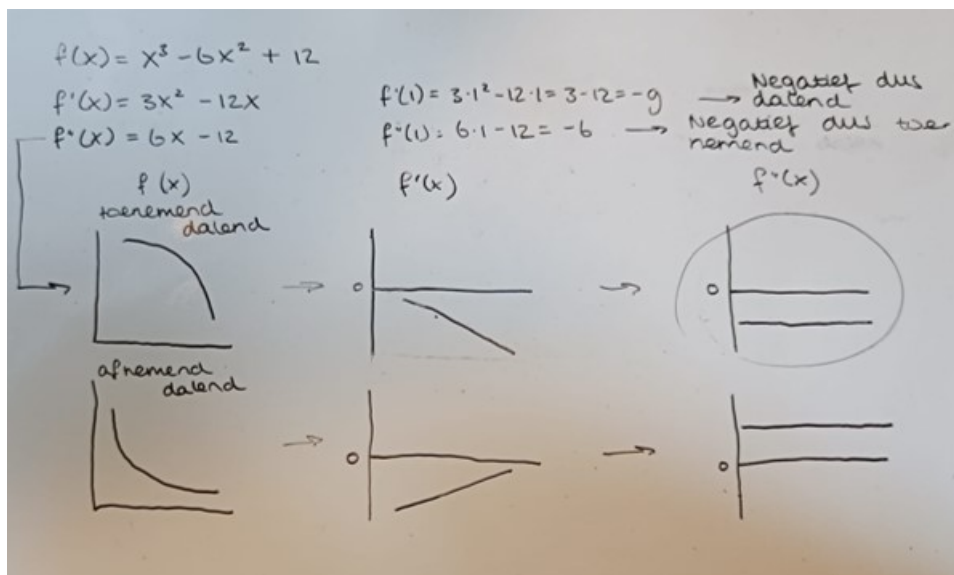 f(x) = x³ - 6x² + 12
f'(x) = 3x² - 12x
f'(1) = 3·1² - 12·1 = 3 - 12 = -9 → Negatief dus dalend
f"(x) = 6x - 12
f"(1) = 6·1 - 12 = -6 → Negatief dus toenemend
f(x)
f'(x)
f"(x)
toenemend
dalend
0
0
afnemend
dalend
0
0